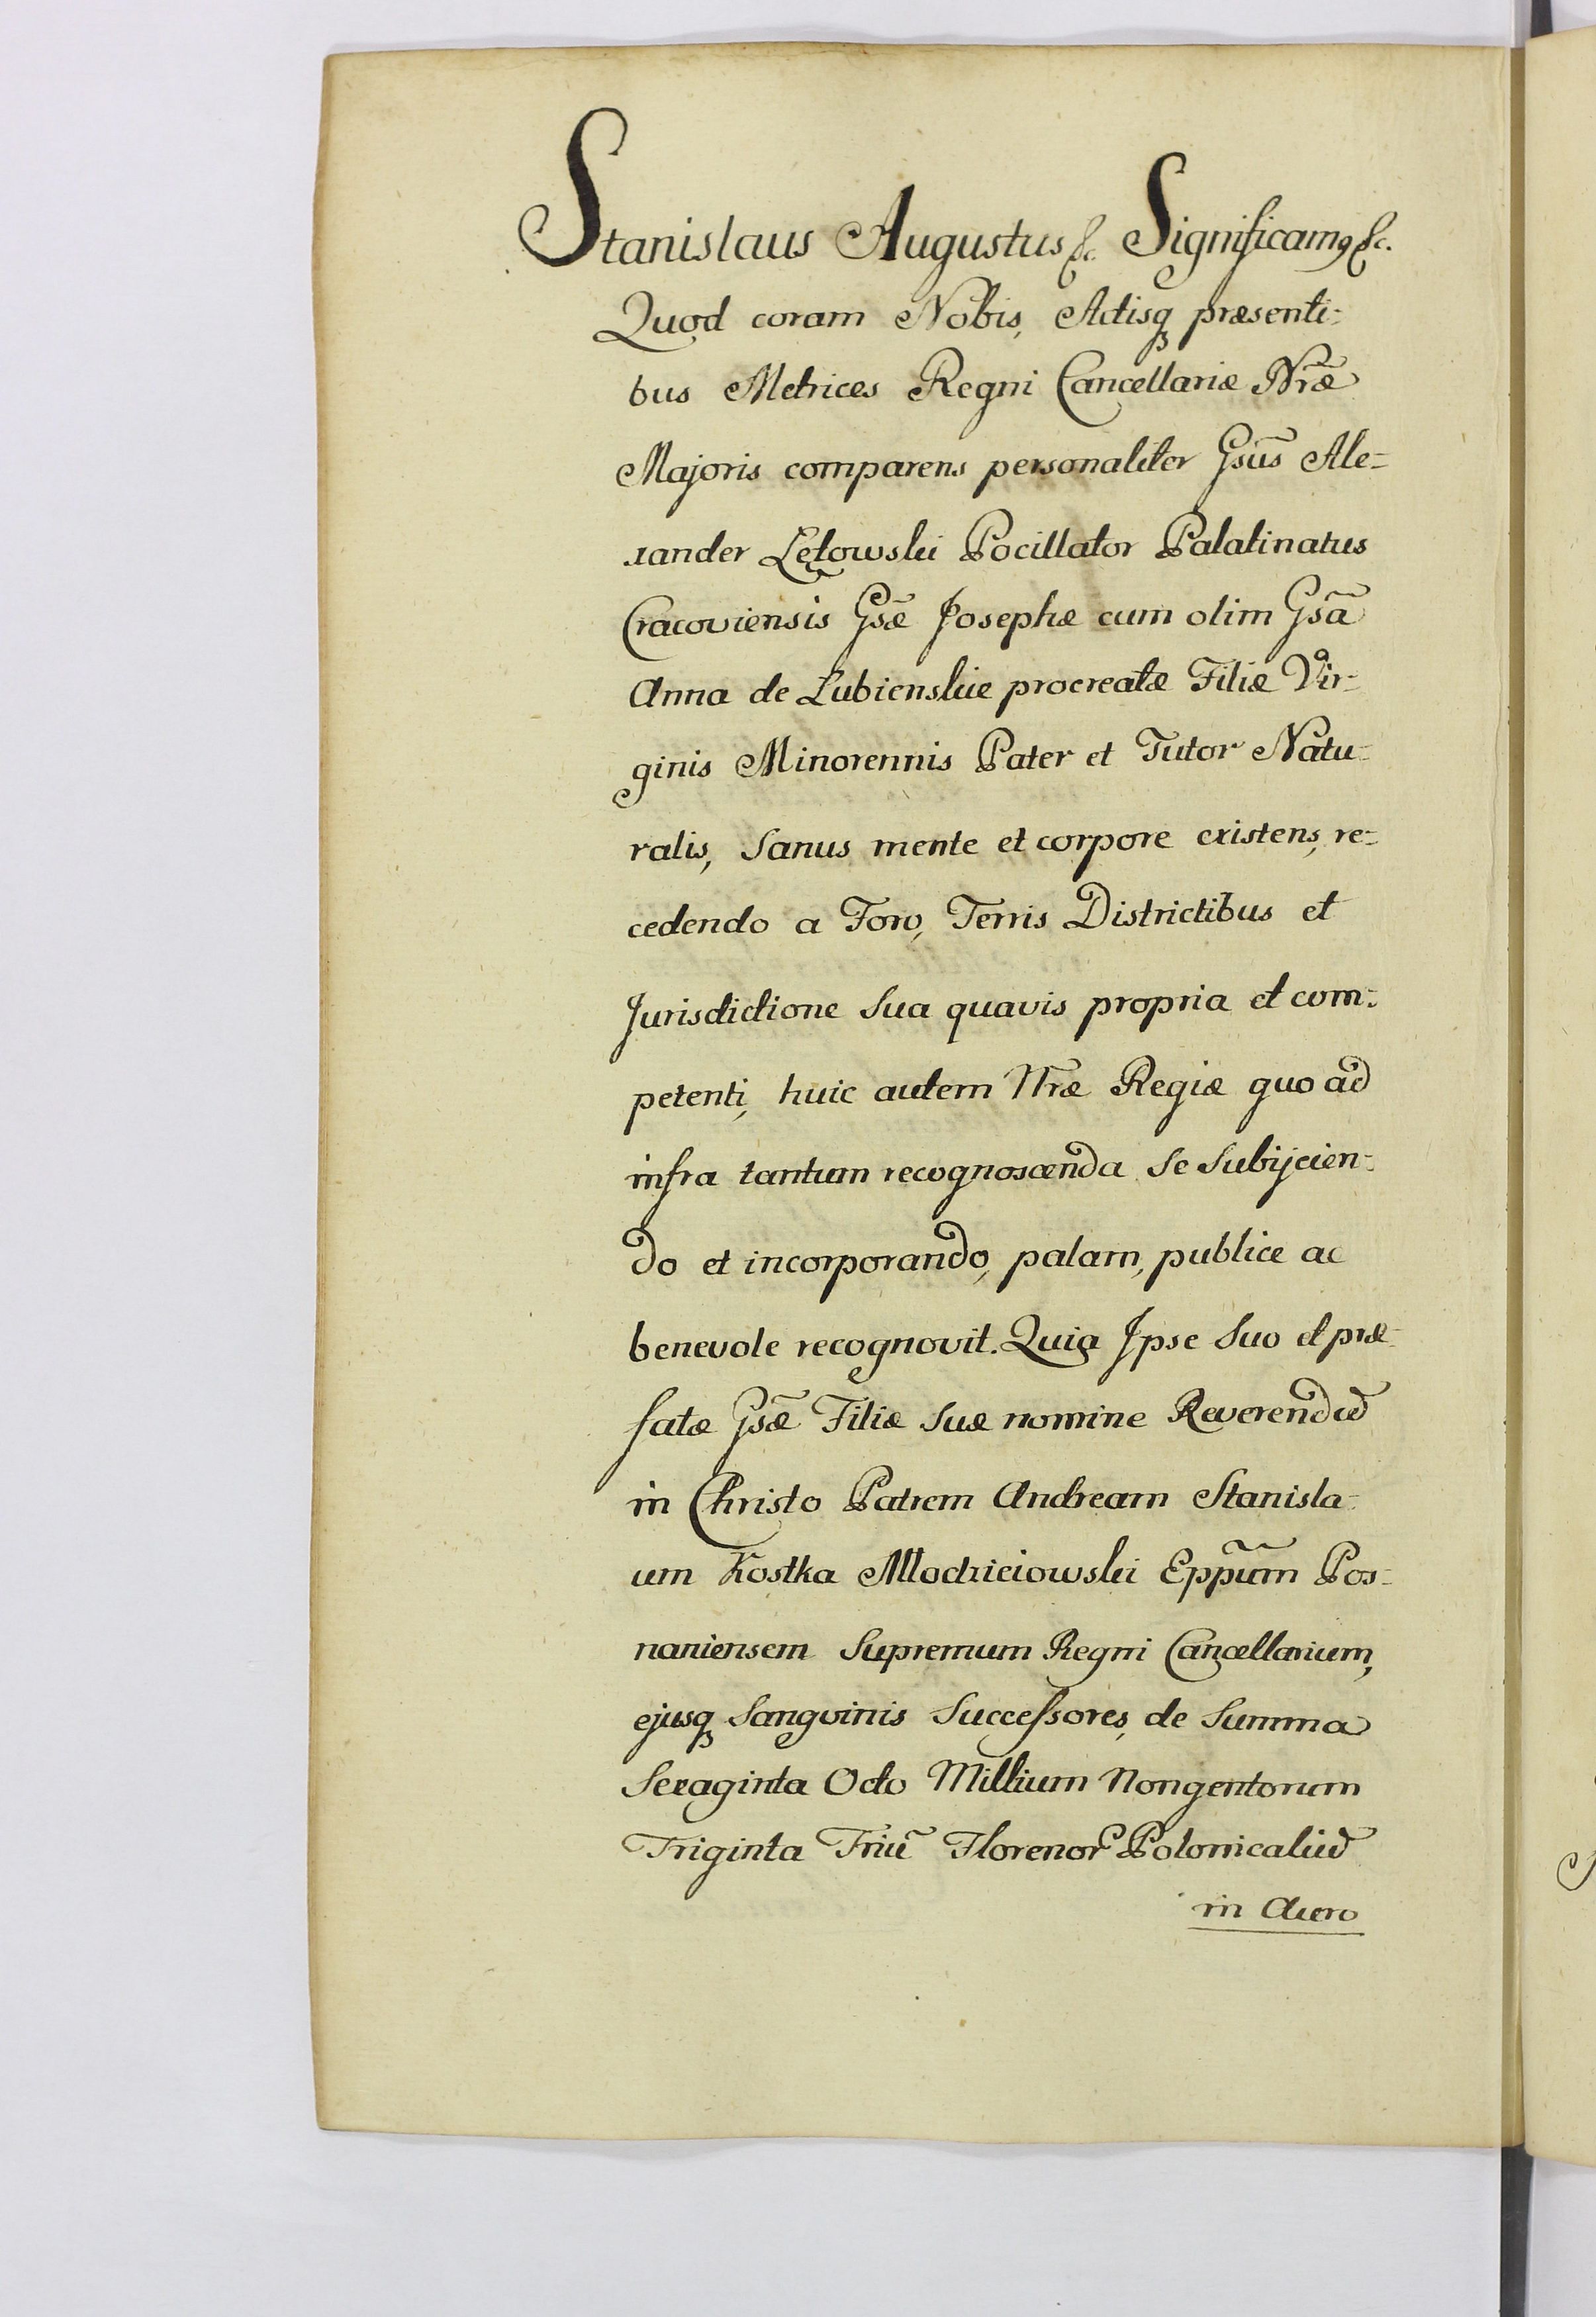 Stanislaus Augustus &c. Significamꝰ &c.
Quod coram Nobis, Actisq́ꝫ præsenti=
bus Metrices Regni Cancellariæ Nr̃æ
Majoris comparens personaliter Gsũs Ale=
xander Łętowski Pocillator Palatinatus
Cracoviensis Gsæ̃ Josephæ cum olim Gsã
Anna de Łubienskie procreatæ Filiæ Vir=
ginis Minorennis Pater et Tutor Natu=
ralis, Sanus mente et corpore existens, re=
cedendo a Foro, Terris Districtibus et
Jurisdictione Sua quavis propria et com=
petenti, huic autem Nr̃æ Regiæ quo ad
infra tantum recognoscenda Se Subijcien=
do et incorporando, palam, publice ac
benevole recognovit. Quia Ipse Suo et præ=
fatæ Gsæ̃ Filiæ Suæ nomine Reverendũ
in Christo Patrem Andream Stanisla=
um Kostka Młodzieiowski Epp̃um Pos=
naniensem Supremum Regni Cancellarium,
ejusqꝫ Sangvinis Successores, de Summa
Sexaginta Octo Millium Nongentorum
Triginta Triũ Florenor̃ Polonicaliũ
in Auro